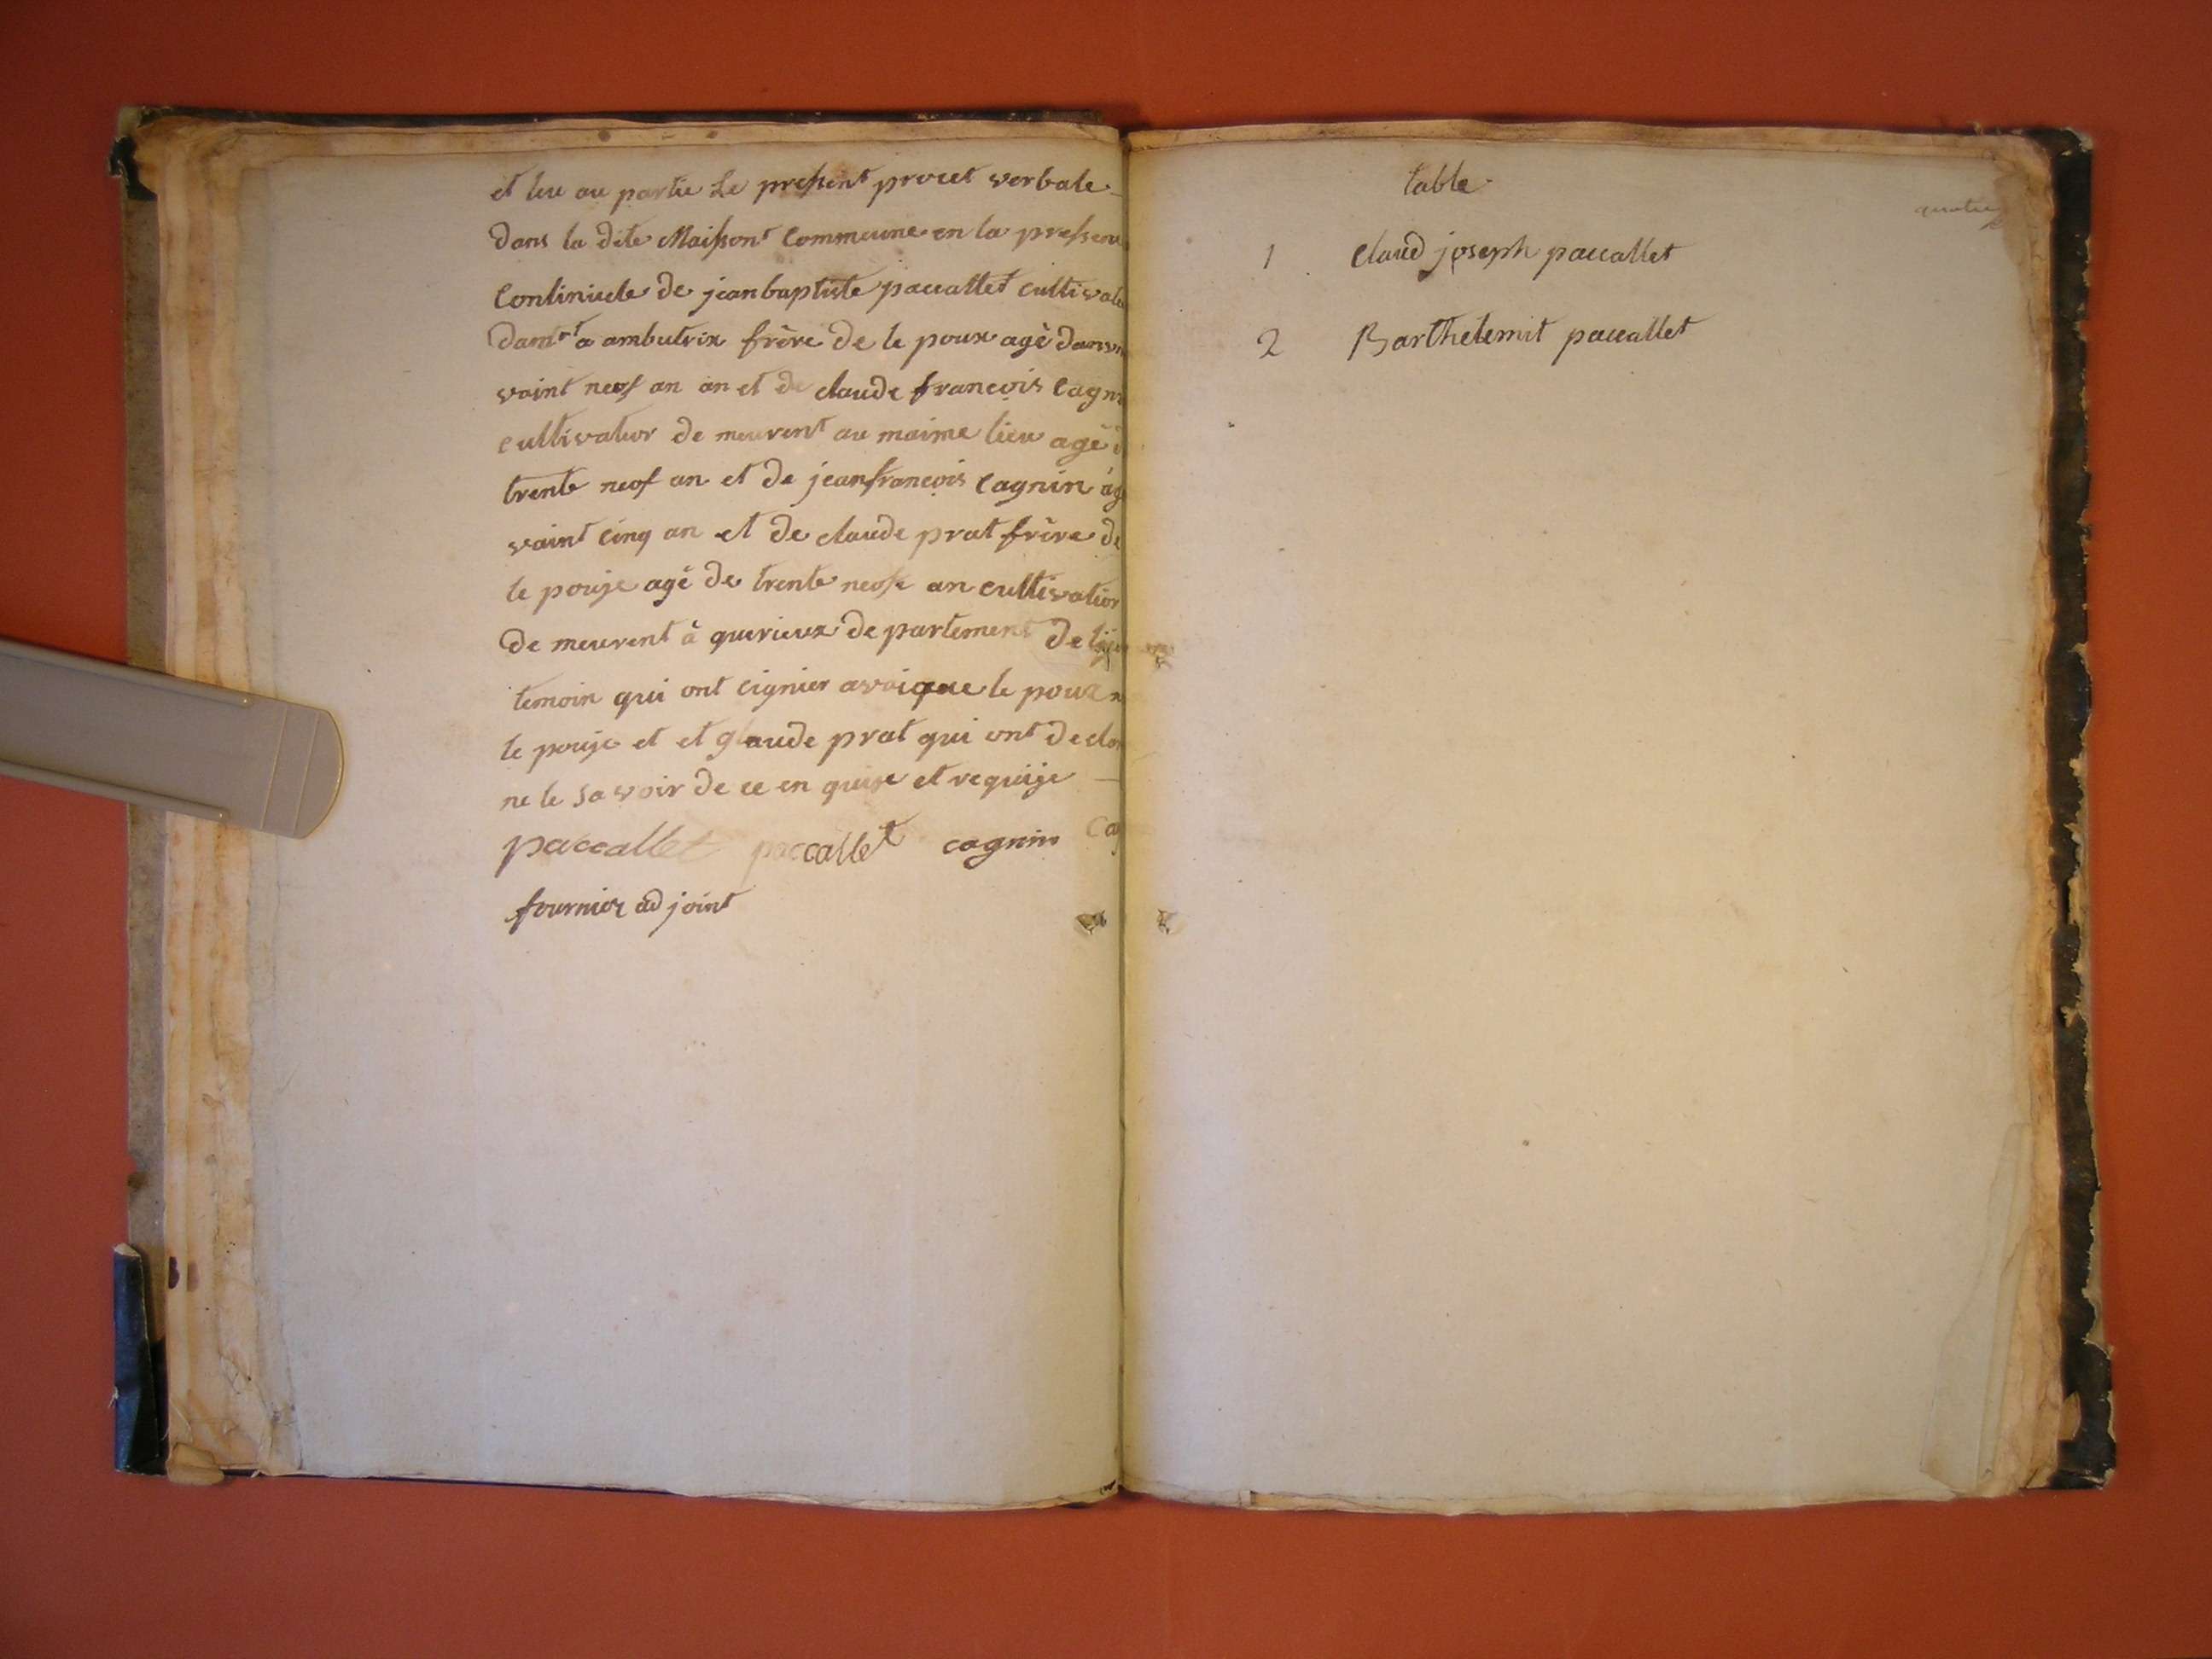 et leu au partie Le present procet verbale
dans la dite Maisont Commeune en la presenc
Continiuele de jeanbaptiste paccallet cultivate
a ambutrix frère de le poux agè
vaint neof an an et de claude francois Cagni
cultivateor de meurent au maime lieu agè d
trente neof an et de jeanfrancois Cagnin ag
vaint cinq an et de claude prat frère de
le pouje agè de trente neofe an cultivatior
de meurent à qurieux de partement de
temoin qui ont cignier avaique le poux n
le pouje et et glaude prat qui ont declar
ne le savoir de ce en quise et requije
paccallet paccallet cagnin Cag
fournier ad joint
table
1 Claud joseph paccallet
2 Barthelemit paccallet